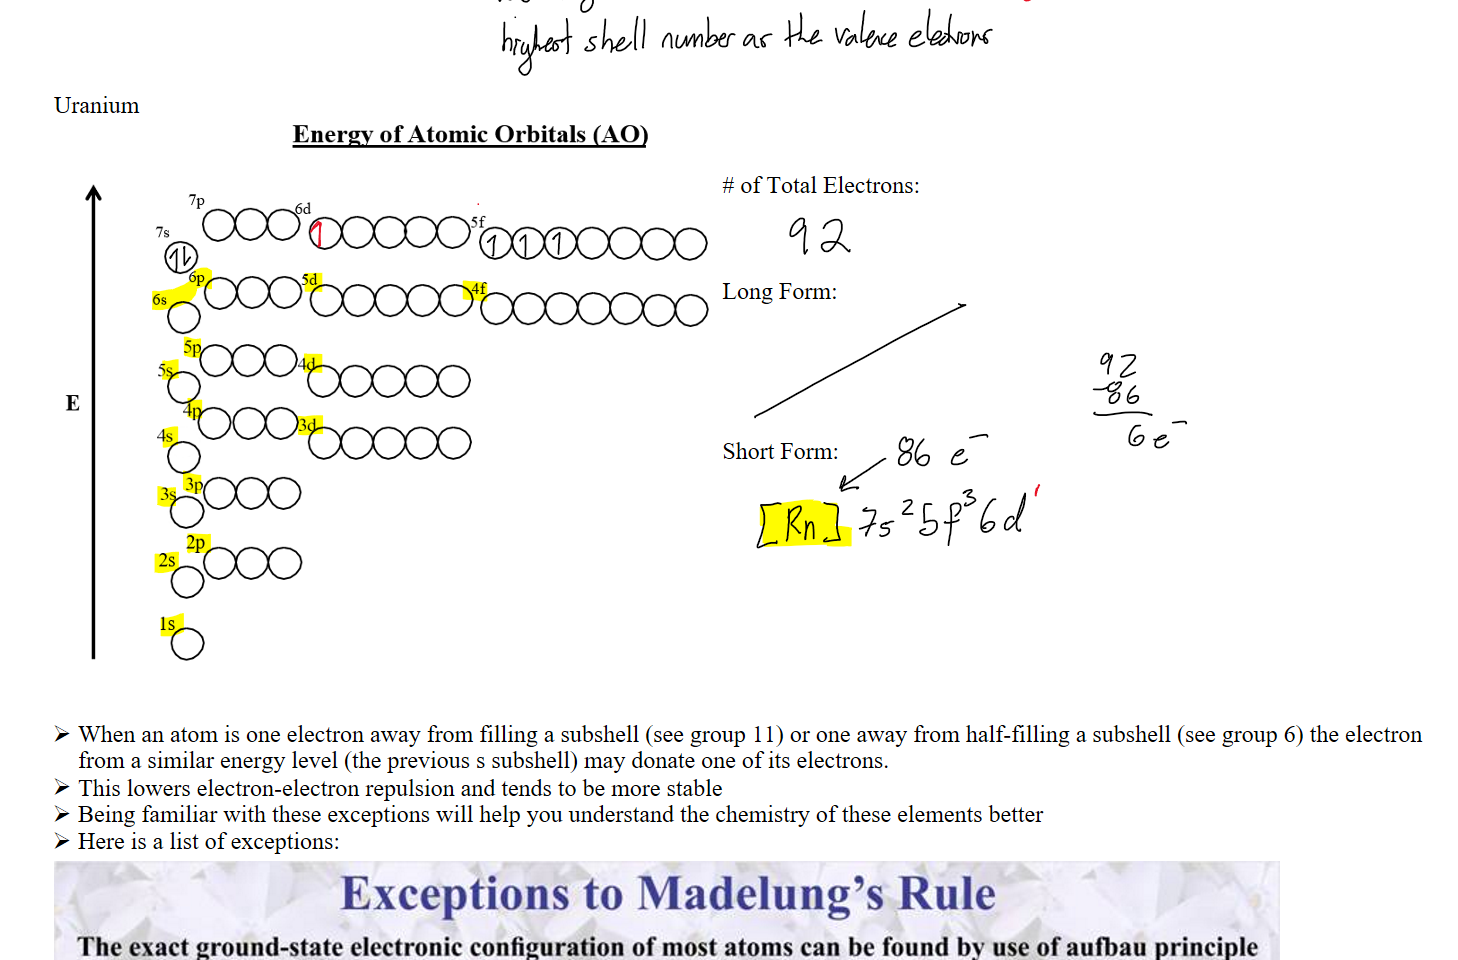 highest shell number as the valence electrons
Uranium
Energy of Atomic Orbitals (AO)
# of Total Electrons:
92
7p
6d
1
5f
1 1 1
7s
1l
6p
5d
4f
6s
Long Form:
5p
4d
5s
92
-86
6e⁻
E
4p
3d
4s
Short Form:
86 e⁻
3p
3s
[Rn] 7s²5f³6d¹
2p
2s
1s
➢ When an atom is one electron away from filling a subshell (see group 11) or one away from half-filling a subshell (see group 6) the electron
from a similar energy level (the previous s subshell) may donate one of its electrons.
➢ This lowers electron-electron repulsion and tends to be more stable
➢ Being familiar with these exceptions will help you understand the chemistry of these elements better
➢ Here is a list of exceptions:
Exceptions to Madelung's Rule
The exact ground-state electronic configuration of most atoms can be found by use of aufbau principle